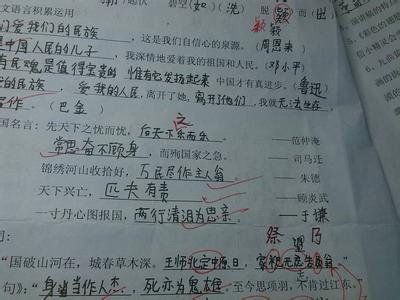 文语言积累运用
碧空(如)(洗) 脱(颖)而(出)
颖 颖
们爱我们的民族 ,这是我们自信心的泉源。(周恩来)
是中国人民的儿子 ,我深情地爱着我的祖国和人民。(邓小平)
有民魂是值得宝贵的 惟有它发扬起来 中国才有真进步。(鲁迅)
爱我的人民,离开了她,离开了他们,我就无法生存
写作。(巴金)
国名言:先天下之忧而忧,后天下乐而乐。 ——范仲淹
之
常思奋不顾身,而殉国家之急。 ——司马迁
锦绣河山收拾好,万民尽作主人翁。 ——朱德
天下兴亡,匹夫有责 ——顾炎武
一寸丹心图报国,两行清泪为忠亲。 ——于谦
祭 乃 望
“国破山河在,城春草木深。王师北定中原日,家祀无忘告
句):“身当作人杰,死亦为鬼雄 至今思项羽,不肯过江东。